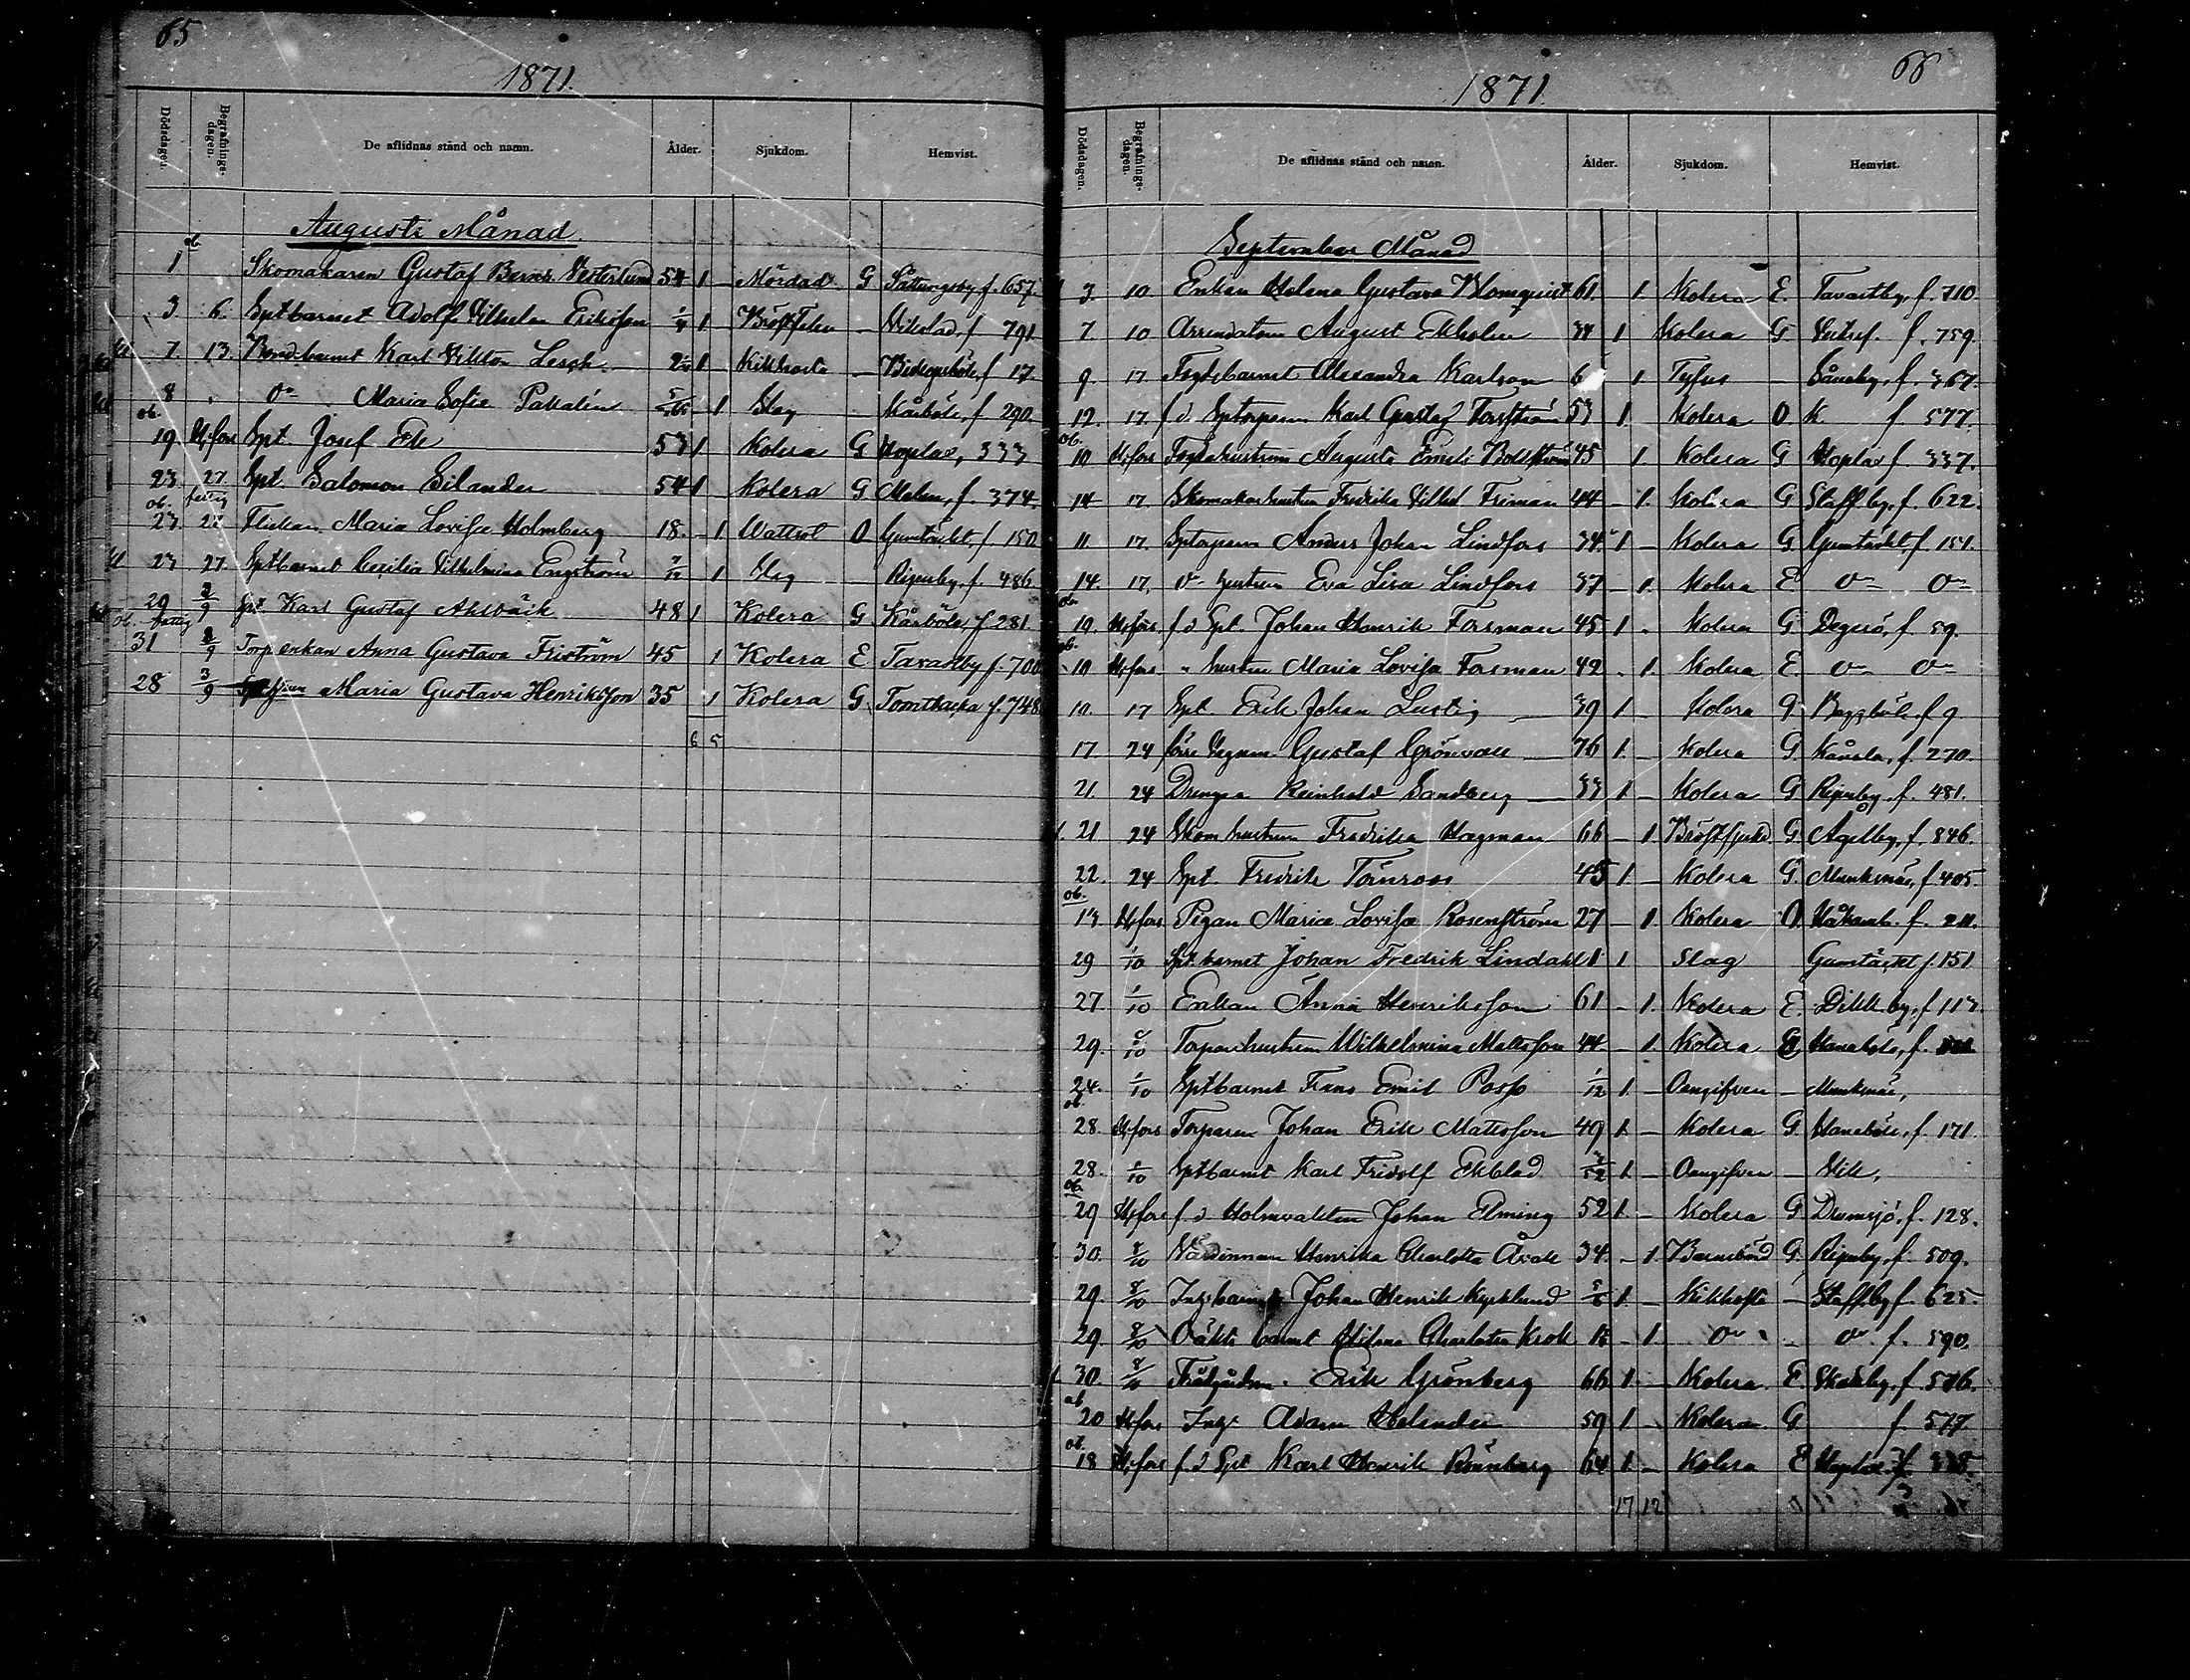 65
1871.
Dödsdagen. Begrafnings-dagen. De aflidnas stånd och namn. Ålder. Sjukdom. Hemvist.
Augusti Månad
1 ob. Skomakaren Gustaf Bernh. Vesterlund 54 1 - Mördad G Sottungsby f. 657.
3 6. Sptbarnet Adolf Vilhelm Eriksson 1/4 1 Bröstfeber - f 791
7 13. Bondbarnet Karl Viktor Lesch 1 Kikhosta - f 17.
8 " Do Maria Sofia Pallalin 1 Slag Kårböle, f 290.
ob. 19 H:fors Spt Josef Ek 53 1 Kolera G Hoplax, 333
23. 27. Spt Salomon Silander 54 1 Kolera G Malm, f. 374.
ob. 23. fattig 27. Flickan Maria Lovisa Holmberg 18. - 1 Wattsot O Gumtäckt f 150
23 27. Sptbarnet Cecilia Vilhelmina Engström 7/12 1 Slag Ripuby, f. 486.
29 3/9 Spt. Karl Gustaf Ahlbäck 48 1 Kolera G Kårböle, f 281.
ob. fattig 31 3/9 Torp enkan Anna Gustava Friström 45 1 Kolera E Tavastby f. 700
28 3/9 Maria Gustava Henriksson 35 1 Kolera G Tomtbacka f. 748.
6 5
66
1871.
Dödsdagen. Begrafnings-dagen. De aflidnas stånd och namn. Ålder. Sjukdom. Hemvist.
September Månad
3. 10 Enkan Helena Gustava Blomqvist 61. 1. Kolera E. Tavastby, f. 710.
7. 10 Arrendatorn August Ekholm 34 1 Kolera G f. 759.
9. 17 Alexandra Karlson 6 1. Tyfus - Sånsby, f. 367.
12. 17. f d Sptorparen Karl Gustaf Forsström 53 1. Kolera O. K. f. 577.
ob. 10 H:fors Augusta Emeli Boldström 45 1. Kolera G Hoplax f. 337.
14 17. Skomakarhustrun Fredrika Vilhel Friman 44 - 1. Kolera G Staffby, f. 622.
11. 17. Sptorparen Anders Johan Lindfors 34. 1 - Kolera G Gumtäckt, f. 151.
14. 17. Do hustrun Eva Lisa Lindfors 37 - 1. Kolera E Do Do
ob. 10. H:fors f d Spt. Johan Henrik Forsman 45 1 - Kolera G Degerö, f. 59.
ob. 10 H:fors " hustrun Maria Lovisa Forsman 42 - 1. Kolera E. Do Do
10. 17 Spt. Erik Johan Lustig 39 1 - Kolera G Baggböle f 9.
17 24 förre Vegaren Gustaf Grönvall 76 1. - Kolera G. Kånala, f. 270.
21. 24 Drengen Reinhold Sandberg 33 1. - Kolera G Ripuby f. 481.
21 24 Skom hustrun Fredrika Hagman 66 - 1. Bröstsjukd. G Agelby, f. 846.
22. 24 Spt. Fredrik Törnroos 45 1. - Kolera G Munksnäs, f 405.
ob. 13. H:fors Pigan Maria Lovisa Rosenström 27 - 1. Kolera O. f. 211.
29 1/10 Spt barnet Johan Fredrik Lindahl 1 1. Slag Gumtäckt f. 151
27. 1/10 Enkan Anna Henriksson 61 - 1. Kolera E. Dikk.by, f 113.
29. /10 Torparehustrun Wilhelmina Matsson 44 - 1. Kolera Hanaböle, f.
24. 1/10 Sptbarnet Frans Emil Poss 1/12 1. - Oangifven - Munksnäs,
ob. 28. H:fors Torparen Johan Erik Mattsson 49 1. - Kolera G. Hanaböle, f. 171.
28. 1/10 Sptbarnet Karl Fridolf Ekblad 3/52 1. - Oangifven -
ob. 29 H:fors f d Holmvakten Johan Elming 52 1. - Kolera G. Drumsjö, f. 128.
30. 8/10 Värdinnan Henrika Charlotta Åvall 34. - 1. Barnsbörd G. Ripuby, f. 509.
29. 8/10 Inh:barnet Johan Henrik Kyrklund 1. - Kikhosta - Staffby f. 625.
29. 8/10 Oäkta barnet Helena Charlotta Krok - 1. Do - Do f. 590.
30. 8/10 Trädgårdsm. Erik Grönberg 66 1. - Kolera E. f. 576.
ob 20 H:fors Inh: Adam Helander 59 1. - Kolera G f 577
ob. 18 H:fors f. d Spt Karl Henrik Rönnberg 64 1. - Kolera E Hoplax f. 338.
17 12